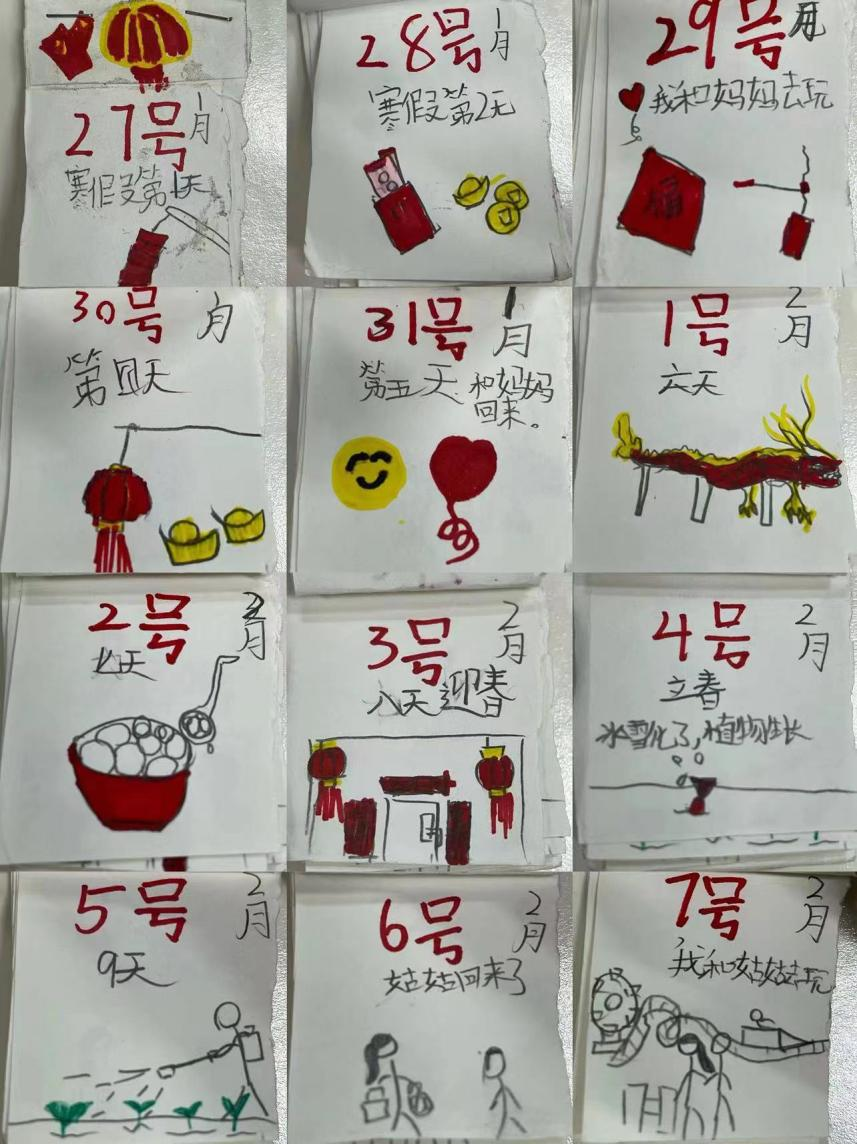 27号
1月
寒假第1天
28号
1月
寒假第2天
29号
月
我和妈妈去玩
福
30号
1月
第四天
31号
1月
第五天 和妈妈
回来。
1号
2月
六天
2号
2月
七天
3号
2月
八天迎春
4号
2月
立春
冰雪化了,植物生长
5号
2月
9天
6号
2月
姑姑回来了
7号
2月
我和姑姑去玩